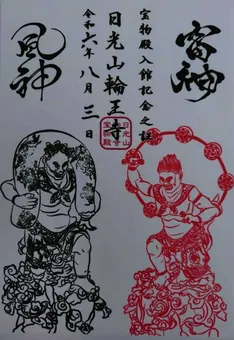 雷神
宝物殿入館記念之証
日光山輪王寺
令和六年八月三日
風神
日光山
輪王寺
宝物殿